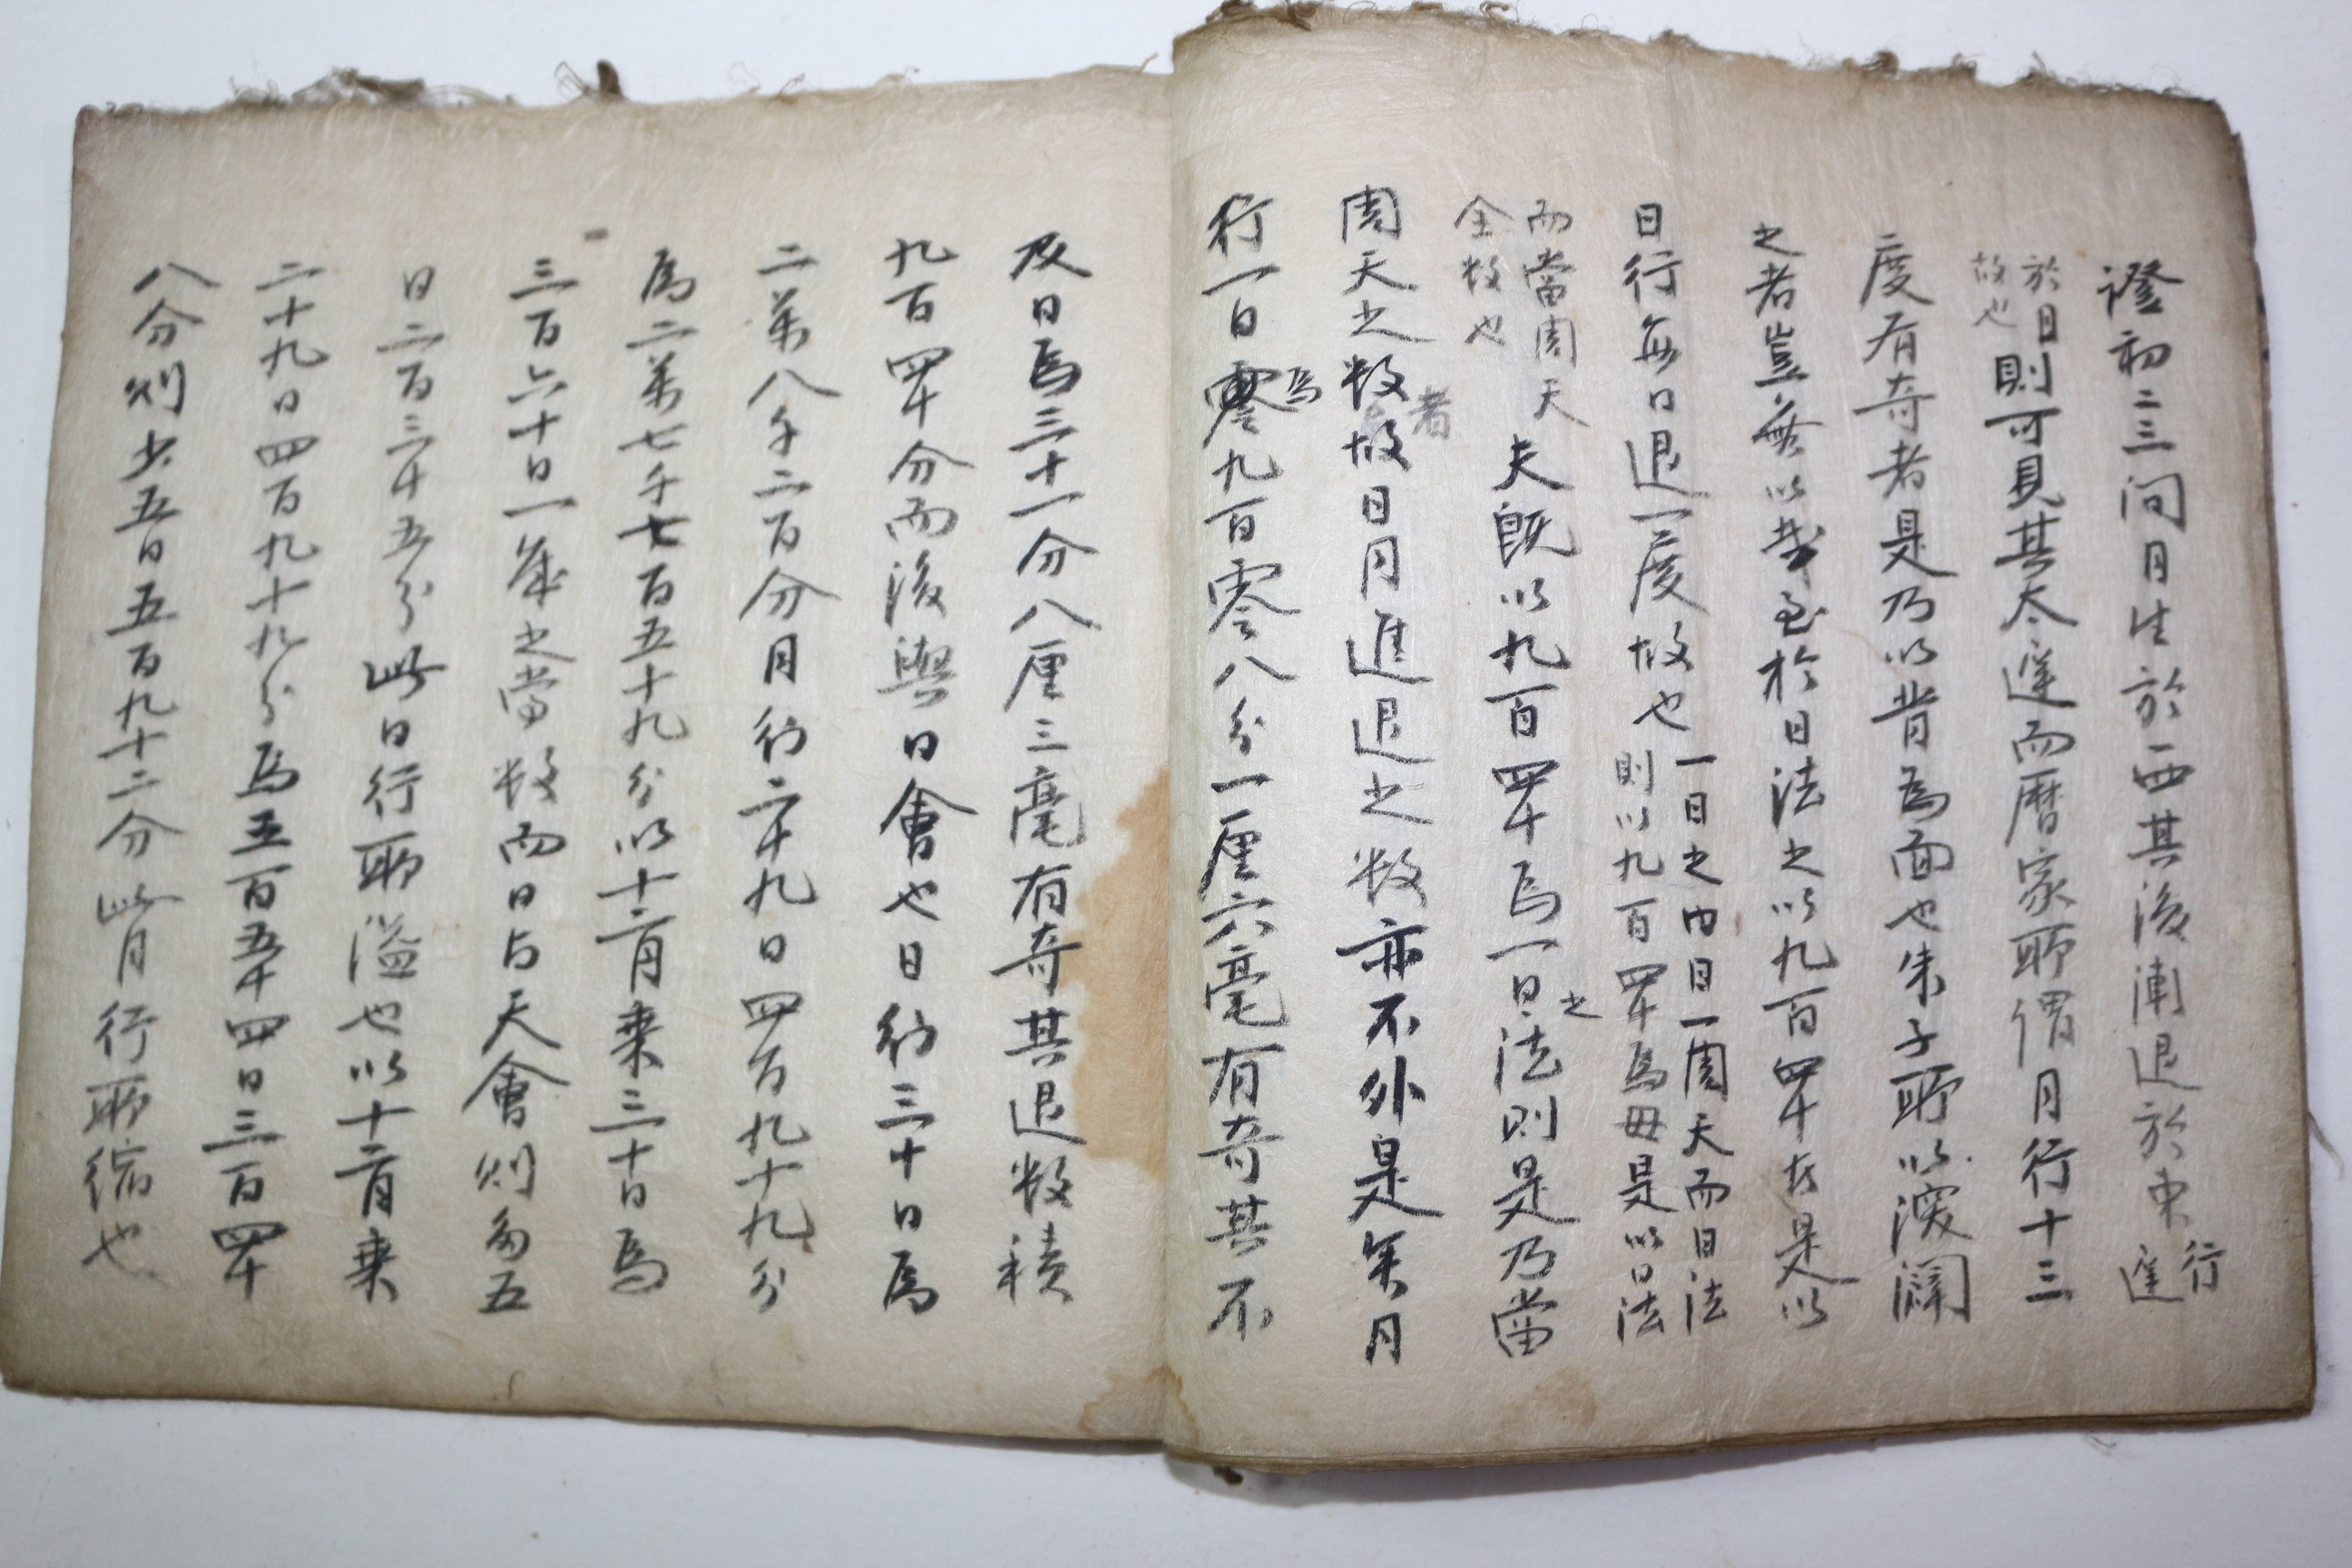 證初二三間月生於西其後漸退於東行遲
於日故也則可見其太遲而曆家所謂月行十三
度有奇者是乃以背爲面也朱子所以深闢
之者豈無以哉至於日法之以九百四十者是以
日行每日退一度故也一日之內日一周天而日法則以九百四十爲母是以日法
而當周天全數也夫旣以九百四十爲一日之法則是乃當
周天之數故者日月進退之數亦不外是矣月
行一日爲零九百零八分一厘六毫有奇其不
及日爲三十一分八厘三毫有奇其退數積
九百四十分而後與日會也日行三十日爲
二萬八千二百分月行二十九日四百九十九分
爲二萬七千七百五十九分以十二月乘三十日爲
三百六十日一歲之當數而日与天會則多五
日二百三十五分此日行所溢也以十二月乘
二十九日四百九十九分爲三百五十四日三百四十
八分則少五日五百九十二分此月行所縮也